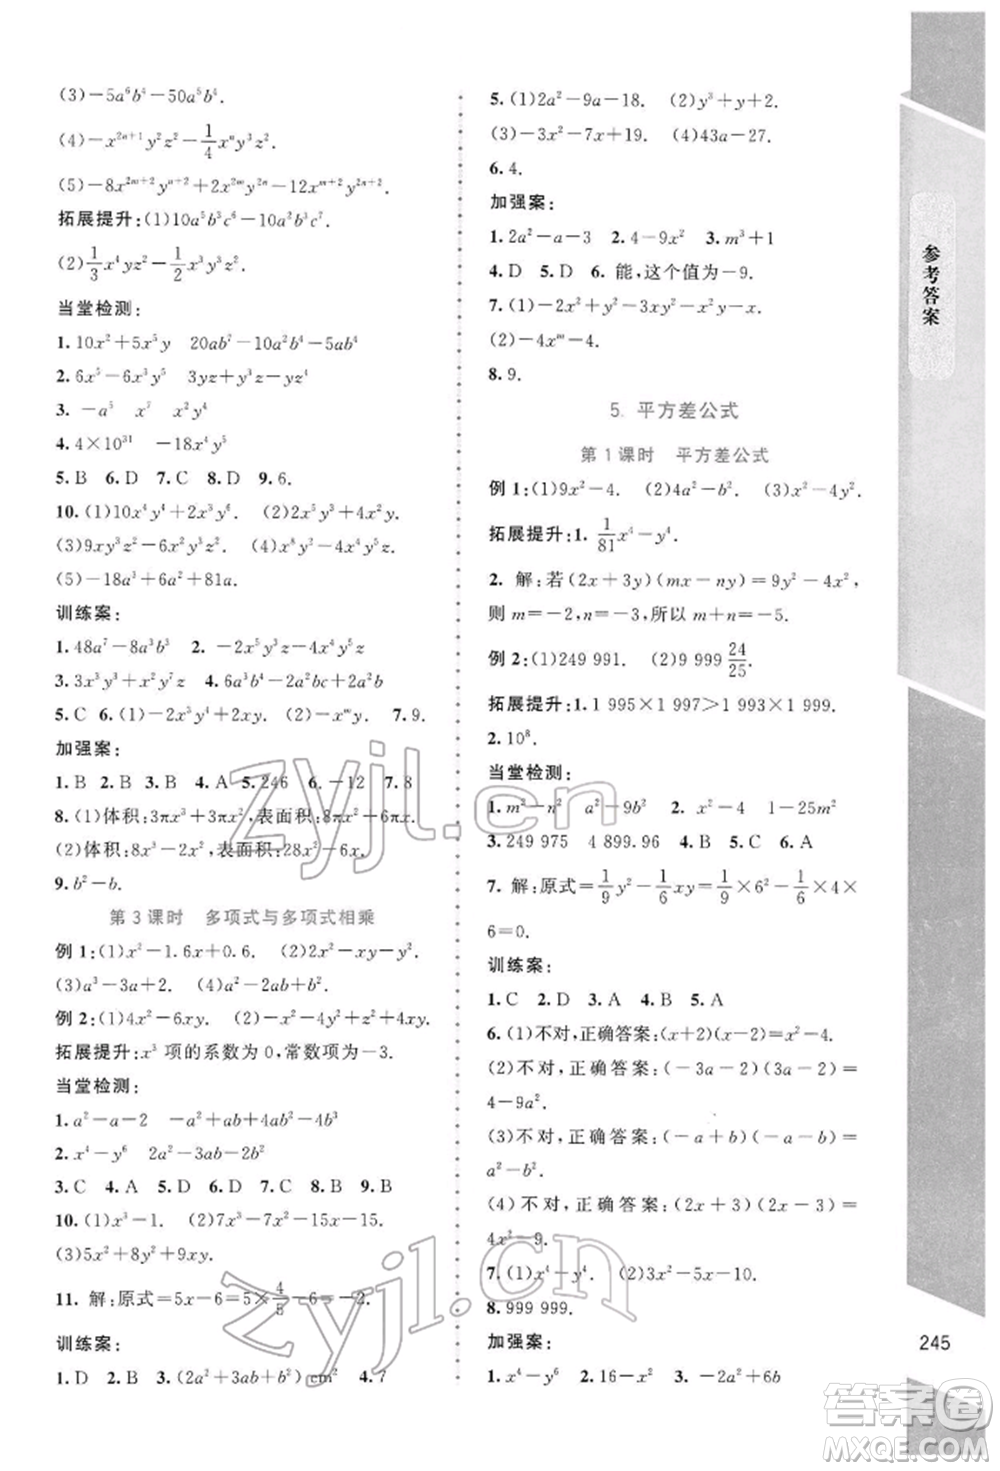 (3)-5a⁶b⁴-50a⁵b⁴.
(4)-x²ⁿ⁺¹yz²-\frac{1}{4}xⁿy³z².
(5)-8x²ᵐ⁺²yⁿ⁺²+2x²ᵐy²ⁿ-12xᵐ⁺²yⁿ⁺².
拓展提升:(1)10a⁵b³c⁶-10a²b³c⁷.
(2)\frac{1}{3}x⁴yz²-\frac{1}{2}x³y³z².
当堂检测:
1. 10x²+5x³y 20ab⁷-10a²b⁵+5ab⁴
2. 6x⁵-6x³y⁵ 3yz+yz²-2z³
3. -a⁵ x³ x⁷
4. 4×10³¹ -18x⁴y
5. B 6. D 7. C 8. D 9. 6.
10. (1)10x⁴y⁴+2x³y⁶. (2)2x⁵y³-2x⁴y⁴.
(3)9xy³z²+9x²y²z². (4)x⁸y²-x²y⁴.
(5)-18a³+6a²+81a.
训练案:
1. 48a⁷-8a³b³ 2. -2x⁵y³z-4x⁴y³z
3. 3x³y³-2x²y²z 4. 6a³b-2a²bc+2a²b
5. C 6. (1)-2x³y⁴+6xy. (2)-xᵐ. 7. 9.
加强案:
1. B 2. B 3. B 4. A 5. 246 6. -12 7. 8
8. (1)体积:3πx³+3πx²,表面积:8πx²+6πx.
(2)体积:8x³-2x²,表面积:28x²-6x.
9. b²-b.
第 3 课时 多项式与多项式相乘
例 1:(1)x²-1.6x+0.6. (2)2x²-xy-y².
(3)a³-3a+2. (4)a²-2ab+b².
例 2:(1)4x²-6xy. (2)-x²-2xz+y²-z².
拓展提升:x³ 项的系数为 0,常数项为-3.
当堂检测:
1. a²-a-2 -a²+ab+4ax-4bx
2. x⁴-y⁶ 2a²-3ab-2b²
3. C 4. A 5. C 6. C 7. B 8. D 9. B
10. (1)x³-1. (2)7x³-7x²-15x-15.
(3)5x²+8y²+9xy.
11. 解:原式=5x-6=5×\frac{4}{5}-6=-2.
训练案:
1. D 2. A 3. (2a²+ab-b²)cm² 4. 7
5. (1)2a²-9a-18. (2)y³+y+2.
(3)-3x²-7x+19. (4)43a-27.
6. 4.
加强案:
1. 2a²-a-3 2. 4-9x² 3. m³+1
4. D 5. D 6. 能,这个值为-9.
7. (1)-2x²+y²-xy²-x²y-x.
(2)-4xᵐ-4.
8. 9.
5. 平方差公式
第 1 课时 平方差公式
例 1:(1)9x²-4. (2)4a²-b². (3)x²-4y².
拓展提升:1. \frac{1}{81}x⁴-y⁴.
2. 解:若(2x+3y)(mx-ny)=9y²-4x²,
则 m=-2,n=-3,所以 m+n=-5.
例 2:(1)249 991. (2)9 999\frac{24}{25}.
拓展提升:1. 1 995×1 997>1 993×1 999.
2. 10⁸.
当堂检测:
1. m²-n² a²-9b² 2. x²-4 1-25m²
3. 249 975 4 899.96 4. B 5. C 6. A
7. 解:原式=\frac{1}{9}y²-\frac{1}{6}xy=\frac{1}{9}×6²-\frac{1}{6}×4×
6=0.
训练案:
1. C 2. D 3. A 4. B 5. A
6. (1)不对,正确答案:(x+2)(x-2)=x²-4.
(2)不对,正确答案:(-3a-2)(3a-2)=
4-9a².
(3)不对,正确答案:(-a+b)(-a-b)=
a²-b².
(4)不对,正确答案:(2x+3)(2x-3)=
4x²-9.
7. (1)x⁴-y⁴. (2)3x²-5x-10.
8. 999 999.
加强案:
1. x⁴-y⁶ 2. 16-x⁴ 3. -2a²+6b
参考答案
245
zyjl.cn
zyjl.cn
答案圈
MXQE.COM